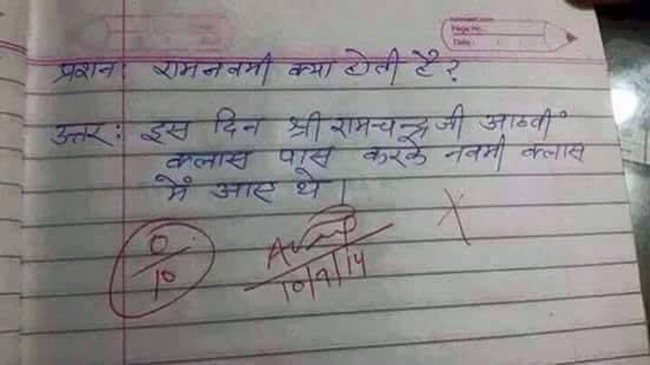 Page No.
Date:
प्रशन: रामनवमी क्या होती है?
उत्तर: इस दिन श्री रामचन्द्र जी आठवीं
क्लास पास करके नवमी क्लास
में आए थे।
X
0/10
10/9/14